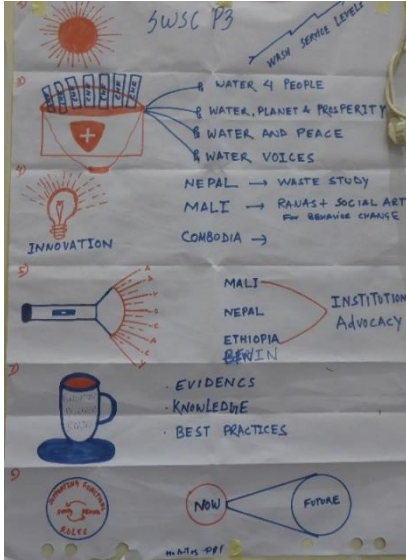 SWSC P3
WASH SERVICE LEVELS
WATER & PEOPLE
WATER, PLANET & PROSPERITY
WATER AND PEACE
WATER VOICES
NEPAL → WASTE STUDY
MALI → RANAS + SOCIAL ART
FOR BEHAVIOR CHANGE
COMBODIA →
INNOVATION
5)
MALI
NEPAL
ETHIOPIA
INSTITUTION
ADVOCACY
7)
· EVIDENCS
· KNOWLEDGE
· BEST PRACTICES
SUPPORTING FUNCTIONS
RULES
NOW
FUTURE